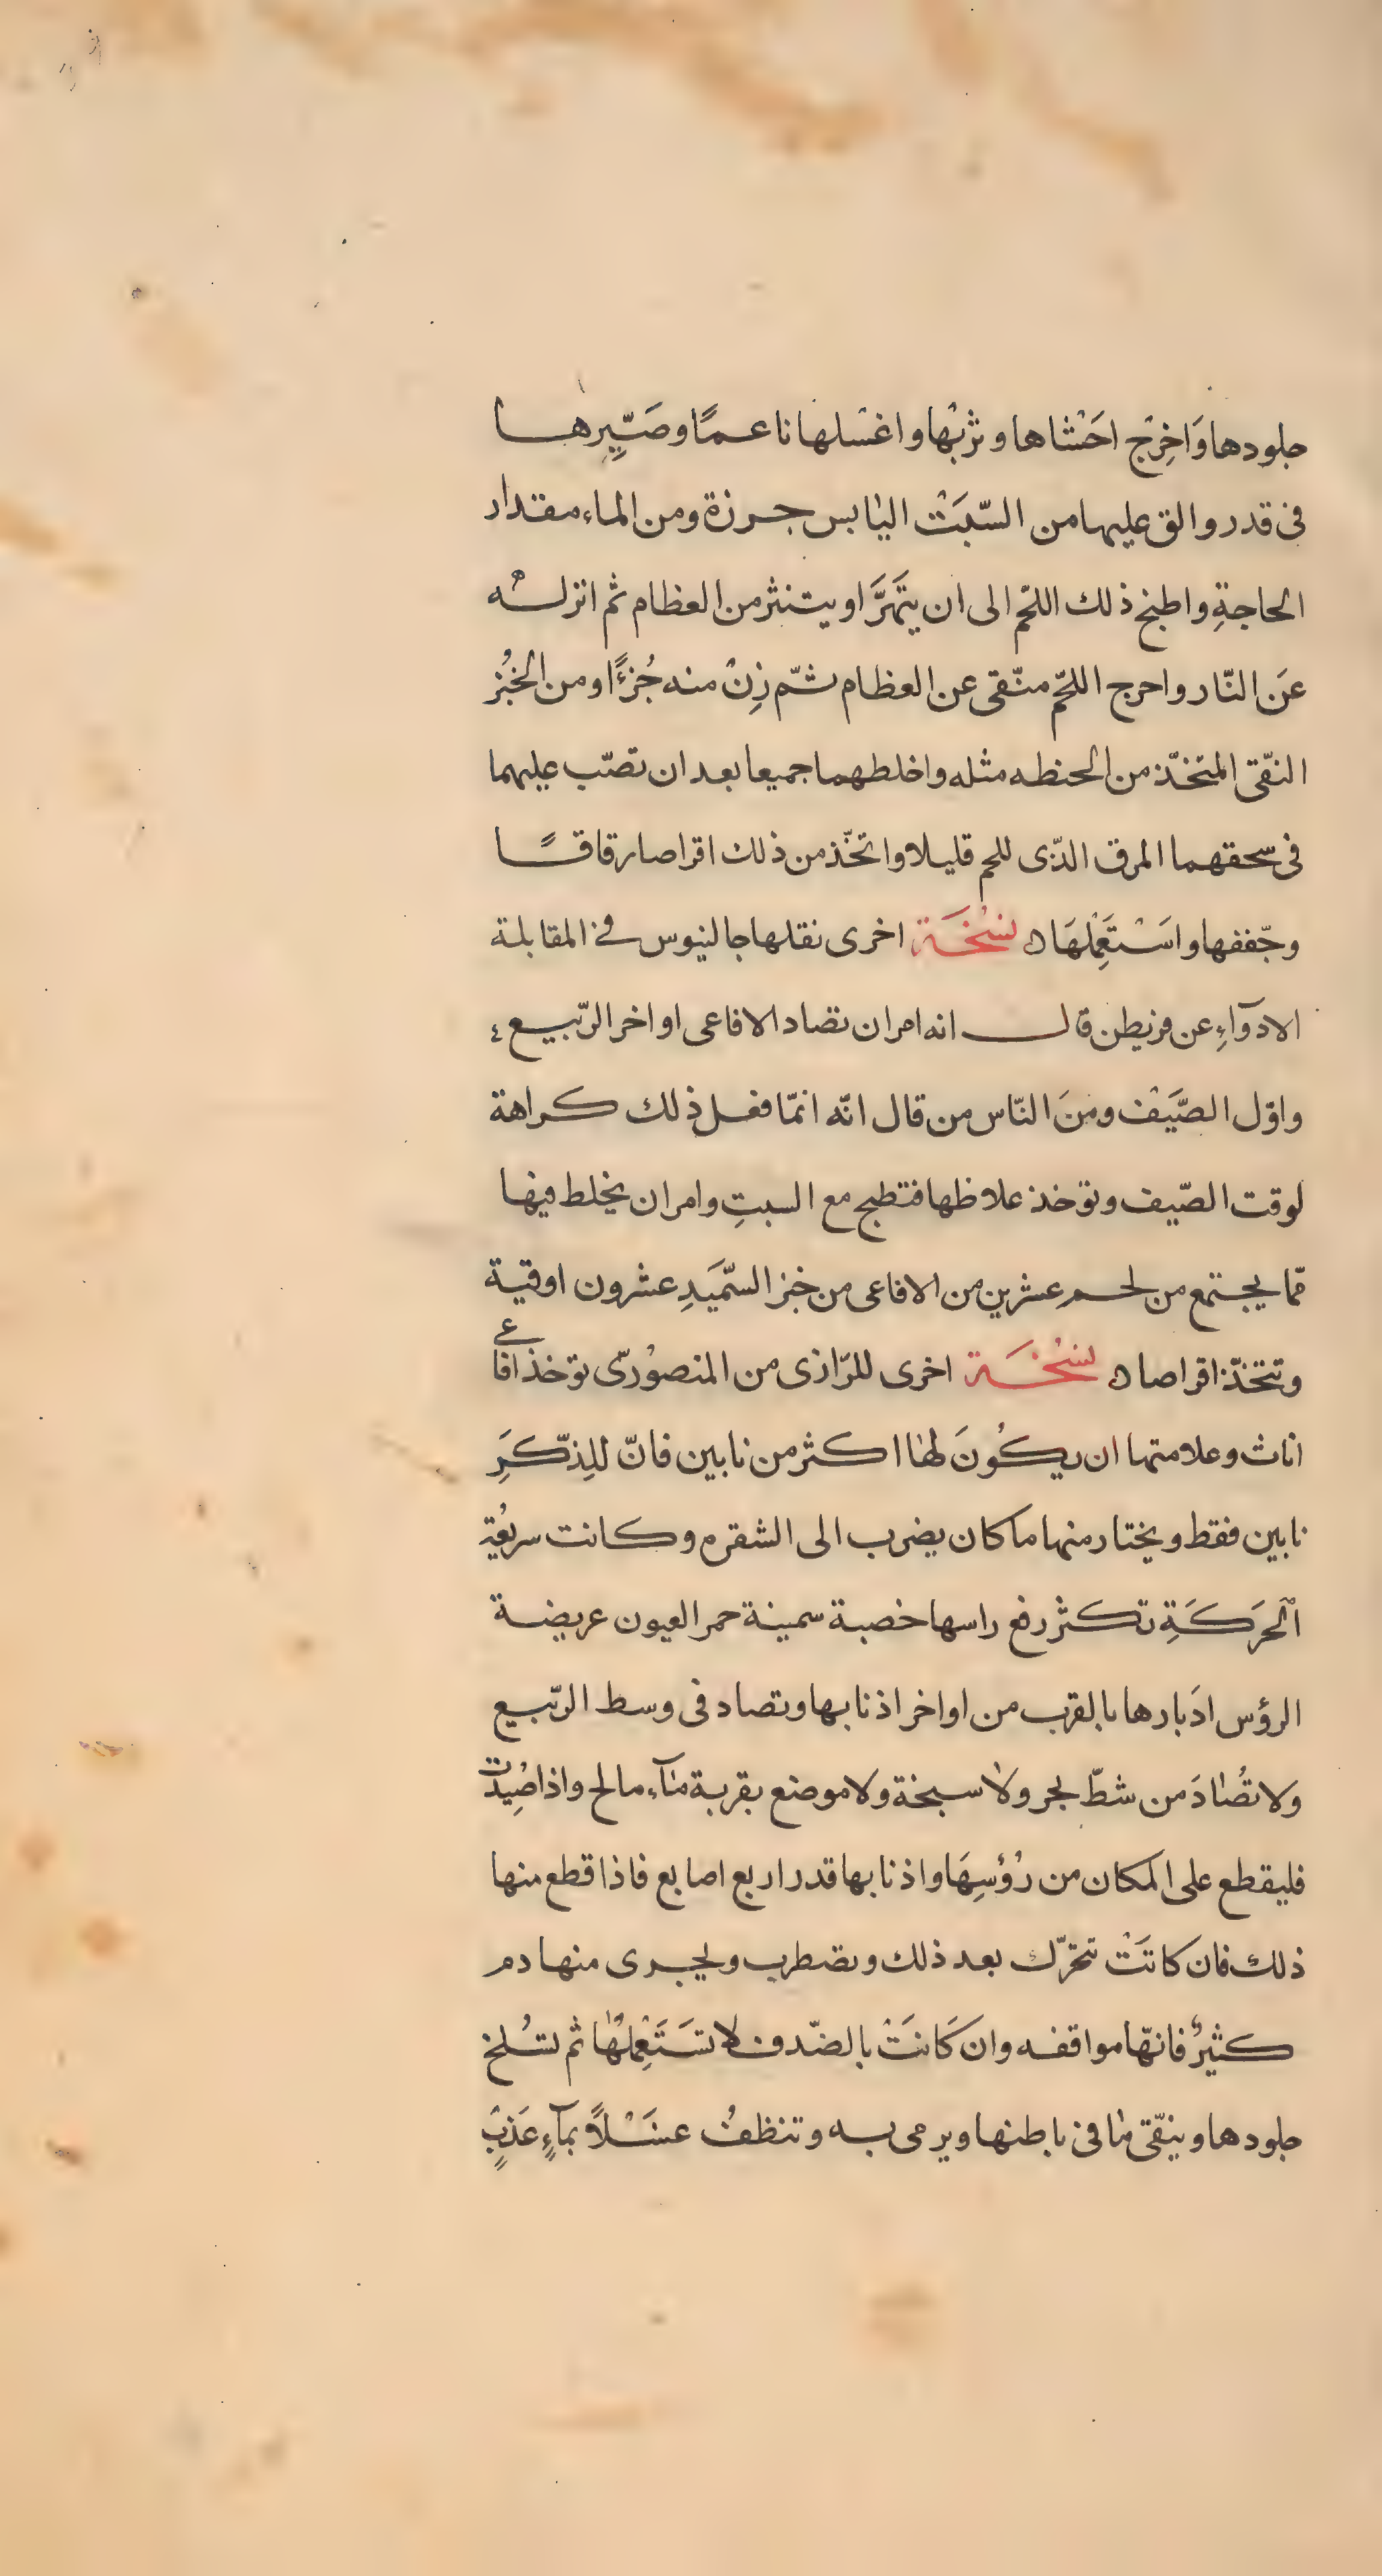 جلودها وَاخِرْج احَشْاها وثربْها واغسْلها ناعمًا وصَيِّرِها
فى قدر والق عليها من السّبَتْ اليابس جرزة ومن الماء مقدار
الحاجةِ واطبخ ذلك اللحّم الى ان يتَهرَّا ويتنثر من العظام ثم انزله
عَن النّار واحرج اللحّم منّقى عن العظام ثمّ زِنْ منه جُزءًا ومن الخبُز
النقّى المتخذّ من الحنطه مثله واخلطهما جميعا بعد ان تصّب عليهما
فى سحقهما المرق الذّى للحم قليلا واتخّذ من ذلك اقراصا رقاقًا
وجّففها واسَتْعَمِلْهَا ه نسُخَة اخرى نقلها جالنيوس فى المقابلة
الادوآءِ عن قريطن قال انه امر ان تصاد الافاعى اواخر الرّبيع
واوّل الصَّيَفْ ومنَ النّاس من قال انّه انمّا فعل ذلك كراهة
لوقت الصّيف وتوخذ علاظها فتطبح مع السبتِ وامر ان يخلط فيها
ممّا يجتمع من لحم عشرين من الافاعى من خبز السّميَدِ عشرون اوقية
وتتخذّ اقراصا ه نسُخَة اخرى للرّازى من المنصوُرىّ توخذ افاعى
اناث وعلامتها ان يكُونَ لها اكثر من نابين فانّ للِذّكَرِ
نابين فقط ويختار منها ما كان يضرب الى الشقرة وكانت سريعُة
الحَرَكَةِ تكثر رفع راسها خصبة سمينة حمر العيون عريضة
الرؤس ادَبارها بالقرب من اواخر اذنابها وتصاد فى وسط الرّبيع
ولا تصُادَ من شطّ بحر ولا سبخة ولا موضع بقربة مآء مالح واذا صُيِدّت
فليقطع على المكان من رُؤسِهَا واذنابها قدر اربع اصابع فاذا قطع منها
ذلك فان كانَتْ تتحرّك بعد ذلك وتضطرب ويجرى منها دم
كثيرٌ فانهّا موافقه وان كَانَتْ بالضّد فلا تسَتَعْمِلهُا ثم تسُلخ
جلودها وينقّى ما فى باطنها ويرمى به وتنظفُ غسَلْاً بمآءٍ عَذبٍ